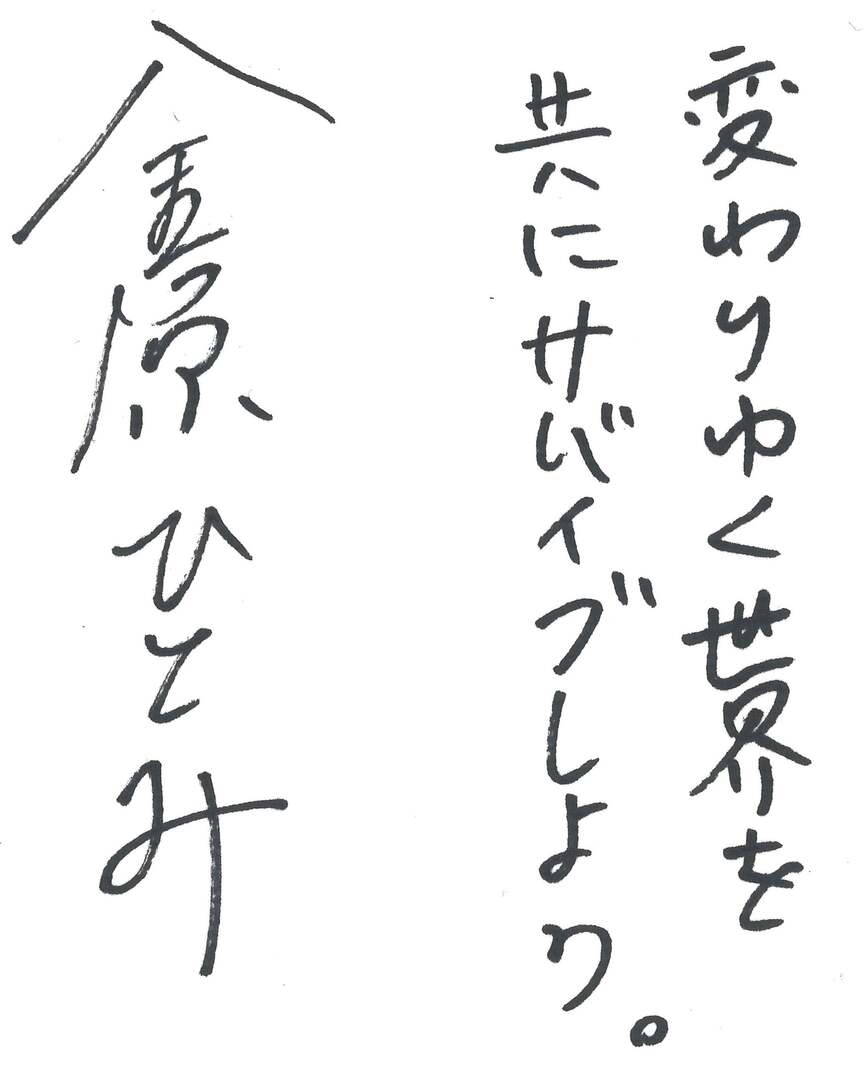 変わりゆく世界を
共にサバイブしよう。
金原ひとみ